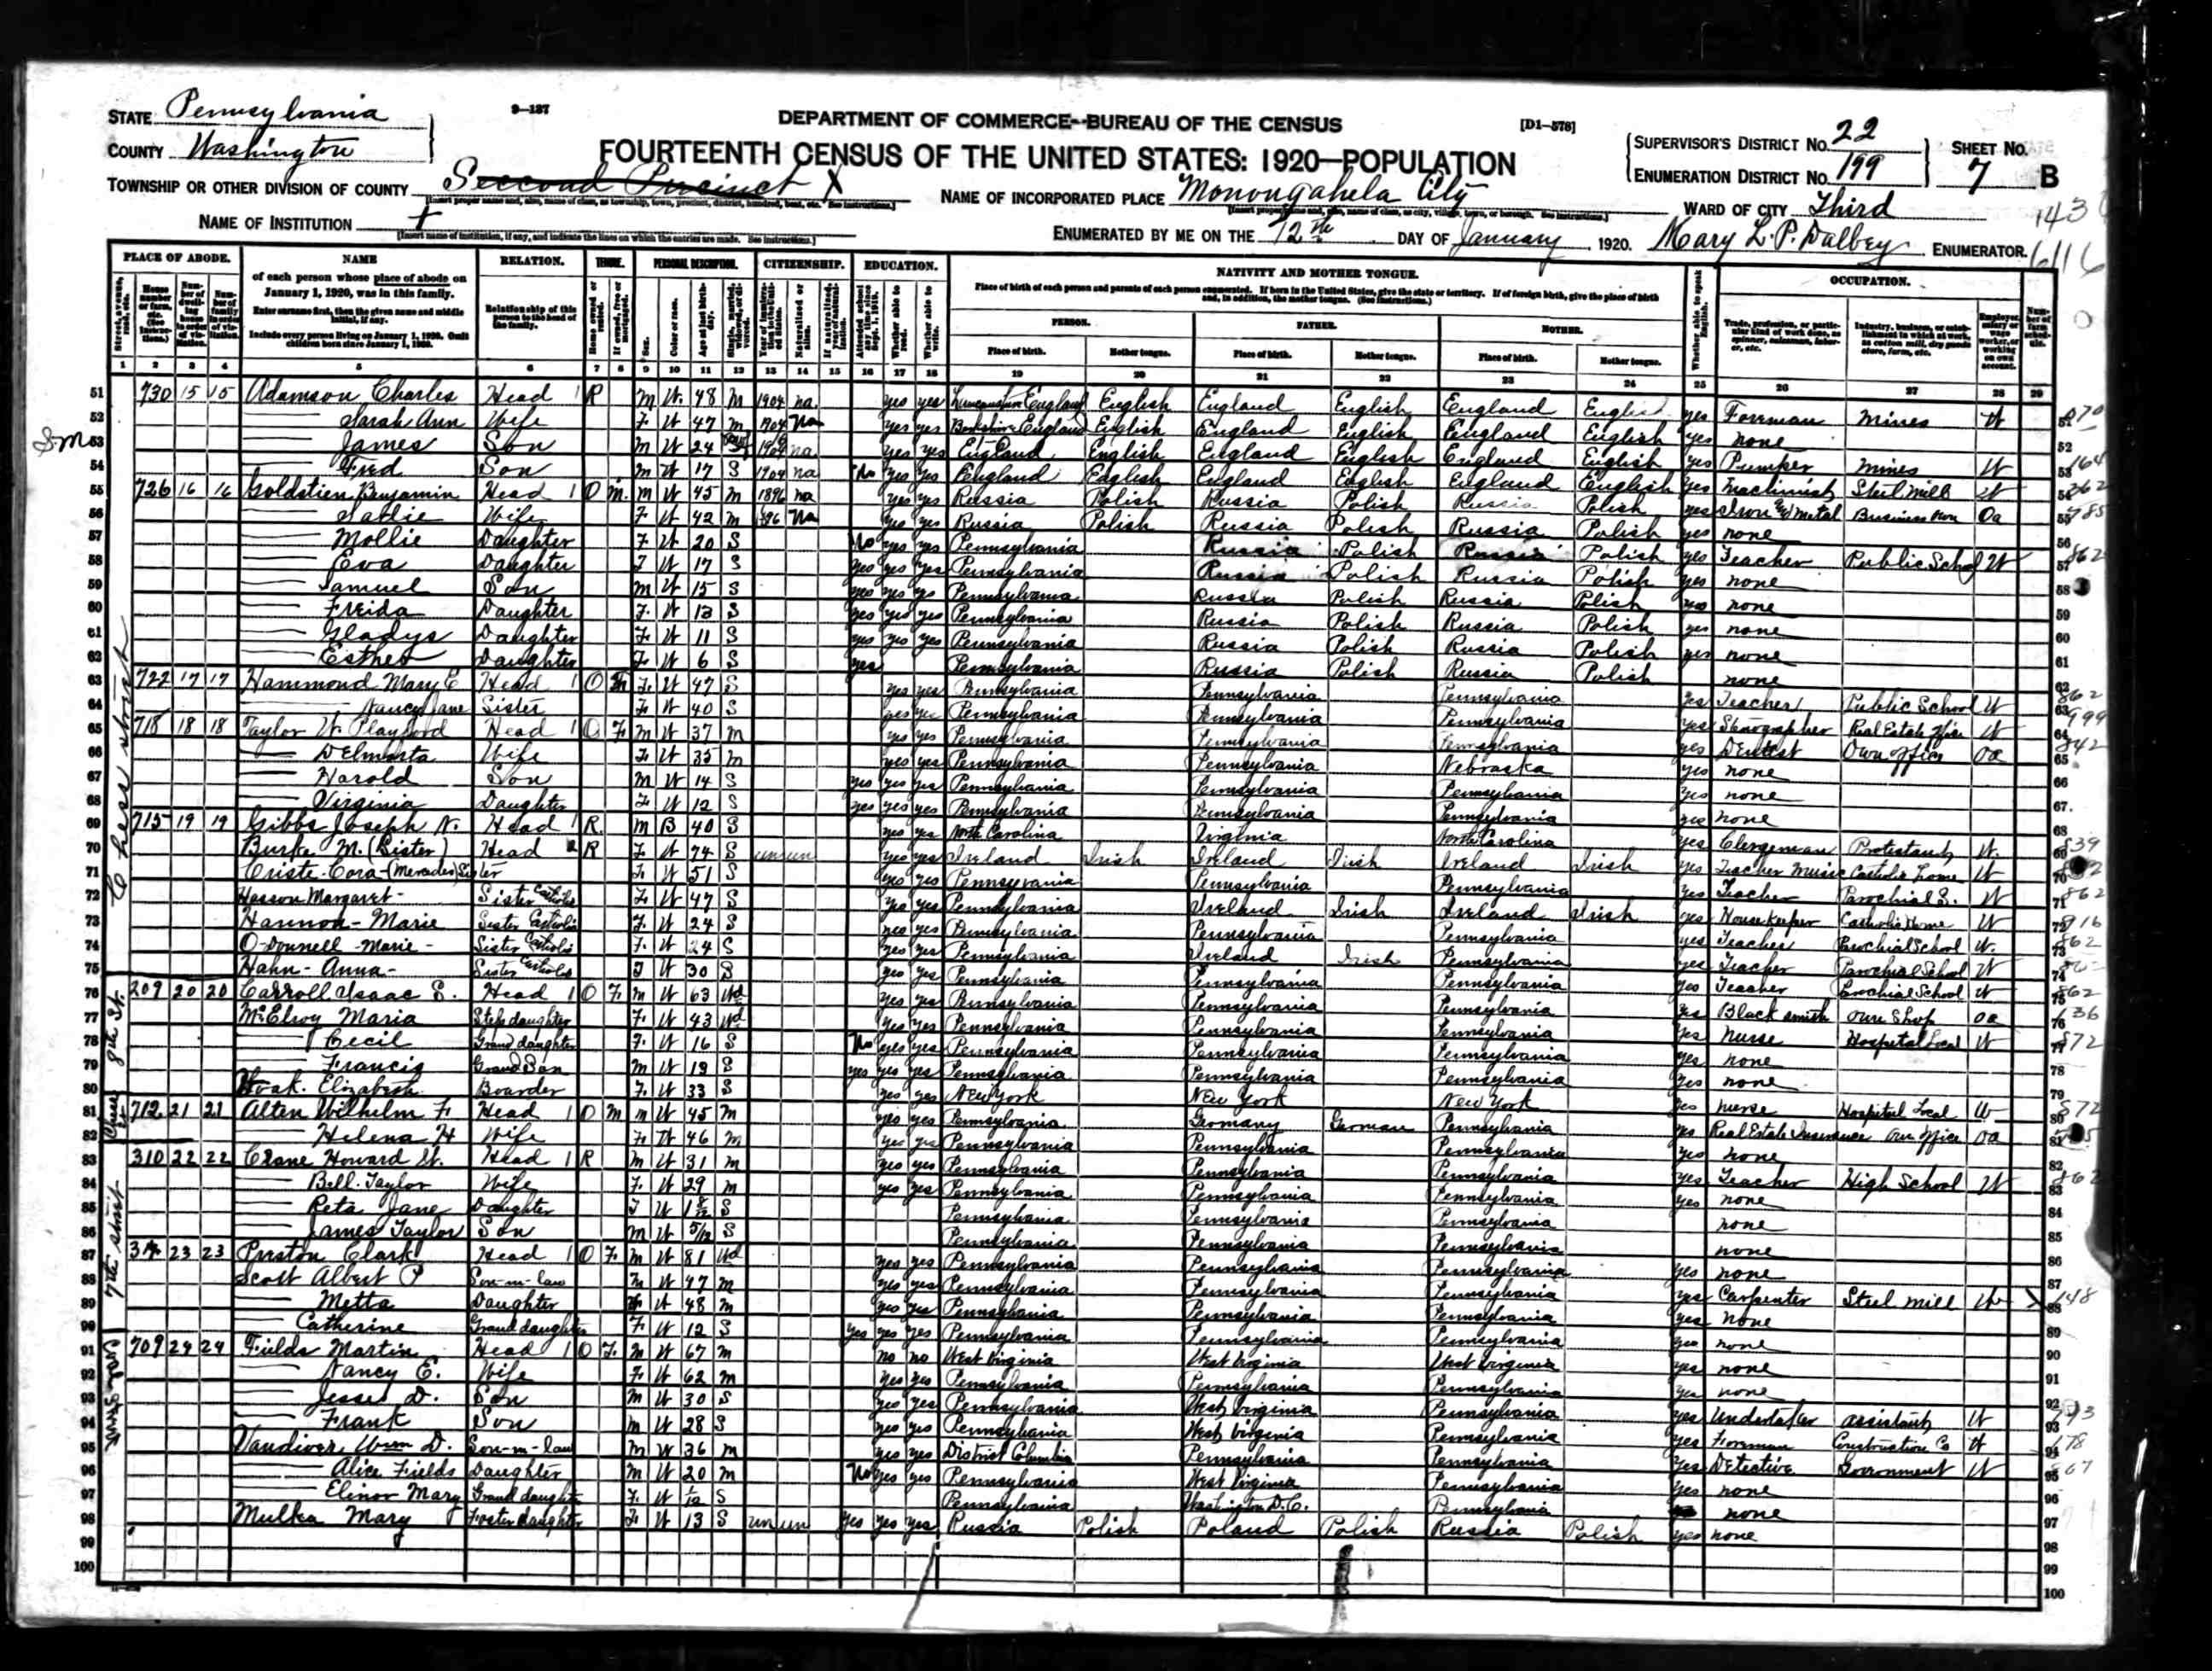 9-137
STATE Pennsylvania
COUNTY Washington
TOWNSHIP OR OTHER DIVISION OF COUNTY Second Precinct X
NAME OF INSTITUTION
DEPARTMENT OF COMMERCE--BUREAU OF THE CENSUS
[D1-578]
FOURTEENTH CENSUS OF THE UNITED STATES: 1920—POPULATION
NAME OF INCORPORATED PLACE Monongahela City
ENUMERATED BY ME ON THE 12th DAY OF January, 1920. Mary L. P. Dalbey, ENUMERATOR.
SUPERVISOR'S DISTRICT No. 22
ENUMERATION DISTRICT No. 199
SHEET No. 7 B
WARD OF CITY Third
PLACE OF ABODE. NAME RELATION. TENURE. PERSONAL DESCRIPTION. CITIZENSHIP. EDUCATION. NATIVITY AND MOTHER TONGUE. OCCUPATION.
of each person whose place of abode on January 1, 1920, was in this family.
Enter surname first, then the given name and middle initial, if any.
Include every person living on January 1, 1920. Omit children born since January 1, 1920.
Relationship of this person to the head of the family.
Place of birth of each person and parents of each person enumerated. If born in the United States, give the state or territory. If of foreign birth, give the place of birth and, in addition, the mother tongue. (See Instructions.)
PERSON. FATHER. MOTHER.
Place of birth. Mother tongue. Place of birth. Mother tongue. Place of birth. Mother tongue.
1 2 3 4 5 6 7 8 9 10 11 12 13 14 15 16 17 18 19 20 21 22 23 24 25 26 27 28 29
51 730 15 15 Adamson Charles Head 1 R M W 48 M 1904 na yes yes England English England English England English yes Foreman Mines W
52 Sarah Ann Wife F W 47 M 1904 na yes yes England English England English England English yes none
53 James Son M W 24 na yes yes England English England English England English yes Pumper Mines W
54 Fred Son M W 17 S 1904 na no yes yes England English England English England English yes Machinist Steel Mill W
55 726 16 16 Goldstien Benjamin Head 1 O M M W 45 M 1896 na yes yes Russia Polish Russia Polish Russia Polish yes Iron and Metal Business Own Oa
56 Wife F W 42 M na yes yes Russia Polish Russia Polish Russia Polish yes none
57 Mollie Daughter F W 20 S no yes yes Pennsylvania Russia Polish Russia Polish yes Teacher Public School W
58 Eva Daughter F W 17 S yes yes yes Pennsylvania Russia Polish Russia Polish yes none
59 Samuel Son M W 15 S yes yes yes Pennsylvania Russia Polish Russia Polish yes none
60 Freida Daughter F W 13 S yes yes yes Pennsylvania Russia Polish Russia Polish yes none
61 Gladys Daughter F W 11 S yes yes yes Pennsylvania Russia Polish Russia Polish yes none
62 Esther Daughter F W 6 S yes Pennsylvania Russia Polish Russia Polish none
63 722 17 17 Hammond Mary E Head 1 O F W 47 S yes yes Pennsylvania Pennsylvania Pennsylvania yes Teacher Public School W
64 Nancy Jane Sister F W 40 S yes yes Pennsylvania Pennsylvania Pennsylvania yes Stenographer Real Estate Office W
65 718 18 18 Taylor W. Playford Head 1 O F M W 37 M yes yes Pennsylvania Pennsylvania Pennsylvania yes Dentist Own Office Oa
66 Wife F W 35 M yes yes Pennsylvania Pennsylvania Nebraska yes none
67 Harold Son M W 14 S yes yes yes Pennsylvania Pennsylvania Pennsylvania yes none
68 Virginia Daughter F W 12 S yes yes yes Pennsylvania Pennsylvania Pennsylvania yes none
69 715 19 19 Gibbs Joseph N. Head 1 R M B 40 S yes yes North Carolina Virginia North Carolina yes Clergeman Protestant W
70 Burke M. (Sister) Head R F W 74 S un un yes yes Ireland Irish Ireland Irish Ireland Irish yes Teacher Music Catholic Home W
71 Criste Cora (Mercedes) Sister F W 51 S yes yes Pennsylvania Pennsylvania Pennsylvania yes Teacher Parochial S. W
72 Hasson Margaret Sister Catholic F W 47 S yes yes Pennsylvania Ireland Irish Ireland Irish yes Housekeeper Catholic Home W
73 Hannon - Marie Sister Catholic F W 24 S yes yes Pennsylvania Pennsylvania Pennsylvania yes Teacher Parochial School W
74 O-Donnell - Marie - Sister Catholic F W 24 S yes yes Pennsylvania Ireland Irish Pennsylvania yes Teacher Parochial School W
75 Hahn - Anna - Sister Catholic F W 30 S yes yes Pennsylvania Pennsylvania Pennsylvania yes Teacher Parochial School W
76 209 20 20 Carroll Isaac S. Head 1 O F M W 63 Wd yes yes Pennsylvania Pennsylvania Pennsylvania yes Black smith Own Shop Oa
77 McElroy Maria Step daughter F W 43 Wd yes yes Pennsylvania Pennsylvania Pennsylvania yes Nurse Hospital Local W
78 Cecil Grand daughter F W 16 S no yes yes Pennsylvania Pennsylvania Pennsylvania yes none
79 Francis Grand Son M W 13 S yes yes yes Pennsylvania Pennsylvania Pennsylvania yes none
80 Elizabeth Boarder F W 33 S yes yes New York New York New York yes Nurse Hospital Local W
81 712 21 21 Alten Wilhelm F. Head 1 O M M W 45 M yes yes Pennsylvania Germany German Pennsylvania yes Real Estate Insurance Own Office Oa
82 Helena H Wife F W 46 M yes yes Pennsylvania Pennsylvania Pennsylvania yes none
83 310 22 22 Crane Howard W. Head 1 R M W 31 M yes yes Pennsylvania Pennsylvania Pennsylvania yes Teacher High School W
84 Bell Taylor Wife F W 29 M yes yes Pennsylvania Pennsylvania Pennsylvania yes none
85 Reta Jane Daughter F W S Pennsylvania Pennsylvania Pennsylvania none
86 James Taylor Son M W 5/12 S Pennsylvania Pennsylvania Pennsylvania none
87 23 23 Preston Clark Head 1 O F M W 81 Wd yes yes Pennsylvania Pennsylvania Pennsylvania yes none
88 Scott Albert P Son-in-law M W 47 M yes yes Pennsylvania Pennsylvania Pennsylvania yes Carpenter Steel Mill W
89 Metta Daughter F W 48 M yes yes Pennsylvania Pennsylvania Pennsylvania yes none
90 Catherine Grand daughter F W 12 S yes yes yes Pennsylvania Pennsylvania Pennsylvania yes none
91 709 24 24 Fields Martin Head 1 O F M W 67 M no no West Virginia West Virginia West Virginia yes none
92 Nancy E. Wife F W 62 M yes yes Pennsylvania Pennsylvania Pennsylvania yes none
93 Jesse D. Son M W 30 S yes yes Pennsylvania West Virginia Pennsylvania yes Undertaker assistant W
94 Frank Son M W 28 S yes yes Pennsylvania West Virginia Pennsylvania yes Foreman Construction Co W
95 Vandiver Wm D. Son-in-law M W 36 M yes yes District Columbia Pennsylvania Pennsylvania yes Detective Government W
96 Alice Fields Daughter M W 20 M no yes yes Pennsylvania West Virginia Pennsylvania yes none
97 Elinor Mary Grand daughter F W S Pennsylvania Washington D.C. Pennsylvania none
98 Mulka Mary Foster daughter F W 13 S un un yes yes yes Russia Polish Poland Polish Russia Polish yes none
99
100
Chess street
8th St.
7th street